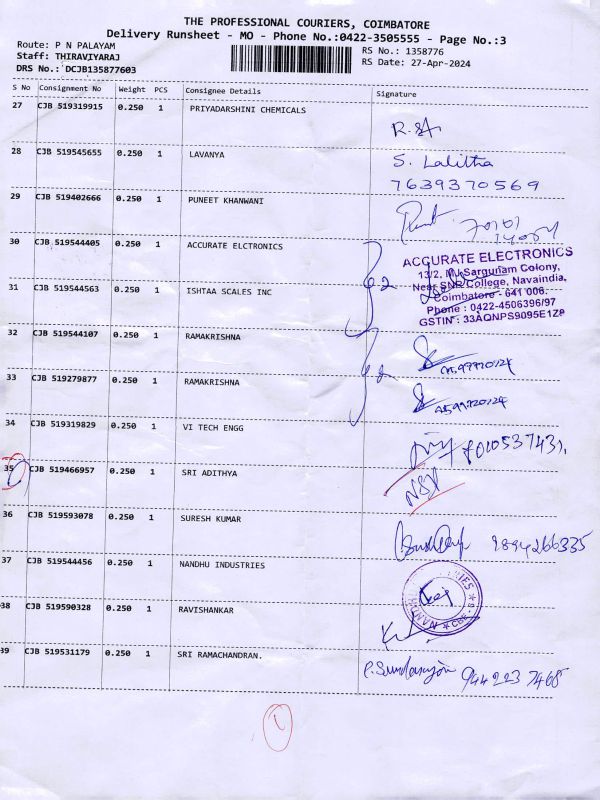 THE PROFESSIONAL COURIERS, COIMBATORE
Delivery Runsheet - MO - Phone No.:0422-3505555 - Page No.:3
Route: P N PALAYAM
Staff: THIRAVIYARAJ
DRS No.: DCJB135877603
RS No.: 1358776
RS Date: 27-Apr-2024
S No Consignment No Weight PCS Consignee Details Signature
27 CJB 519319915 0.250 1 PRIYADARSHINI CHEMICALS
28 CJB 519545655 0.250 1 LAVANYA S. Lalitha
7639370569
29 CJB 519402666 0.250 1 PUNEET KHANWANI
30 CJB 519544405 0.250 1 ACCURATE ELCTRONICS
ACCURATE ELECTRONICS
13/2, MJ Sargunam Colony,
Near SNR College, Navaindia,
Coimbatore - 641 006.
Phone : 0422-4506396/97
GSTIN : 33AQNPS9095E1ZP
31 CJB 519544563 0.250 1 ISHTAA SCALES INC
32 CJB 519544107 0.250 1 RAMAKRISHNA
33 CJB 519279877 0.250 1 RAMAKRISHNA
34 CJB 519319829 0.250 1 VI TECH ENGG 8010537431
35 CJB 519466957 0.250 1 SRI ADITHYA
36 CJB 519593078 0.250 1 SURESH KUMAR 9894266335
37 CJB 519544456 0.250 1 NANDHU INDUSTRIES
38 CJB 519590328 0.250 1 RAVISHANKAR
39 CJB 519531179 0.250 1 SRI RAMACHANDRAN. 9442237468